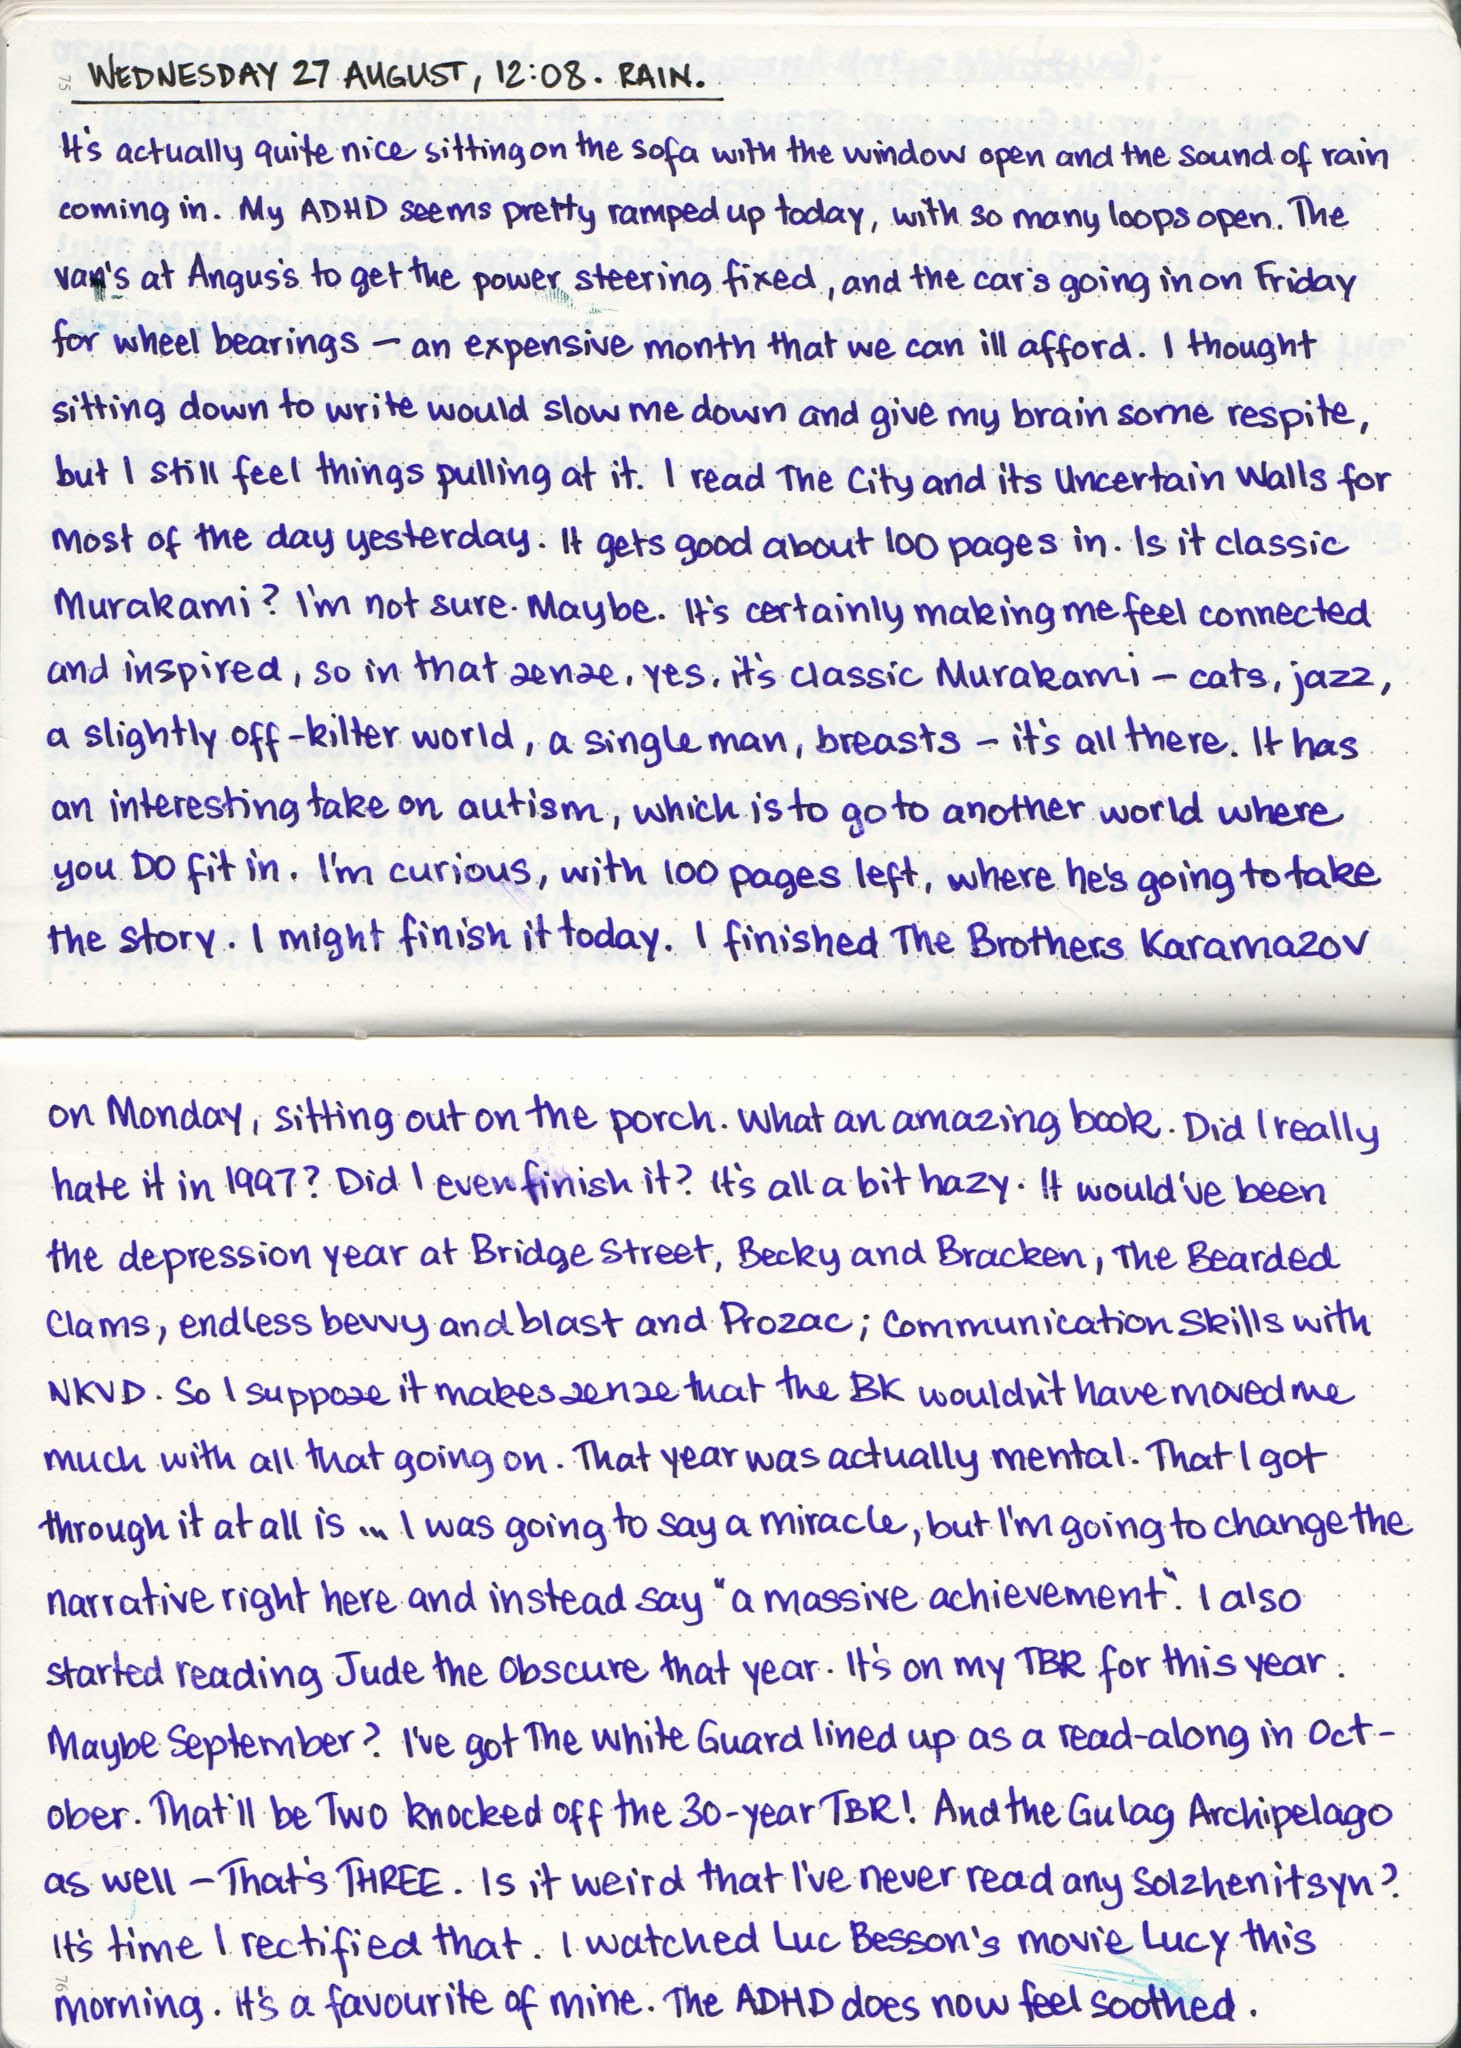 75
WEDNESDAY 27 AUGUST, 12:08. RAIN.
It's actually quite nice sitting on the sofa with the window open and the sound of rain
coming in. My ADHD seems pretty ramped up today, with so many loops open. The
van's at Angus's to get the power steering fixed, and the car's going in on Friday
for wheel bearings – an expensive month that we can ill afford. I thought
sitting down to write would slow me down and give my brain some respite,
but I still feel things pulling at it. I read The City and its Uncertain Walls for
most of the day yesterday. It gets good about 100 pages in. Is it classic
Murakami? I'm not sure. Maybe. It's certainly making me feel connected
and inspired, so in that sense, yes, it's classic Murakami – cats, jazz,
a slightly off-kilter world, a single man, breasts – it's all there. It has
an interesting take on autism, which is to go to another world where
you DO fit in. I'm curious, with 100 pages left, where he's going to take
the story. I might finish it today. I finished The Brothers Karamazov
on Monday, sitting out on the porch. What an amazing book. Did I really
hate it in 1997? Did I even finish it? It's all a bit hazy. It would've been
the depression year at Bridge Street, Becky and Bracken, The Bearded
Clams, endless bevvy and blast and Prozac; Communication Skills with
NKVD. So I suppose it makes sense that the BK wouldn't have moved me
much with all that going on. That year was actually mental. That I got
through it at all is ... I was going to say a miracle, but I'm going to change the
narrative right here and instead say "a massive achievement". I also
started reading Jude the Obscure that year. It's on my TBR for this year.
Maybe September? I've got The White Guard lined up as a read-along in Oct-
ober. That'll be Two knocked off the 30-year TBR! And the Gulag Archipelago
as well – That's THREE. Is it weird that I've never read any Solzhenitsyn?
It's time I rectified that. I watched Luc Besson's movie Lucy this
morning. It's a favourite of mine. The ADHD does now feel soothed.
76